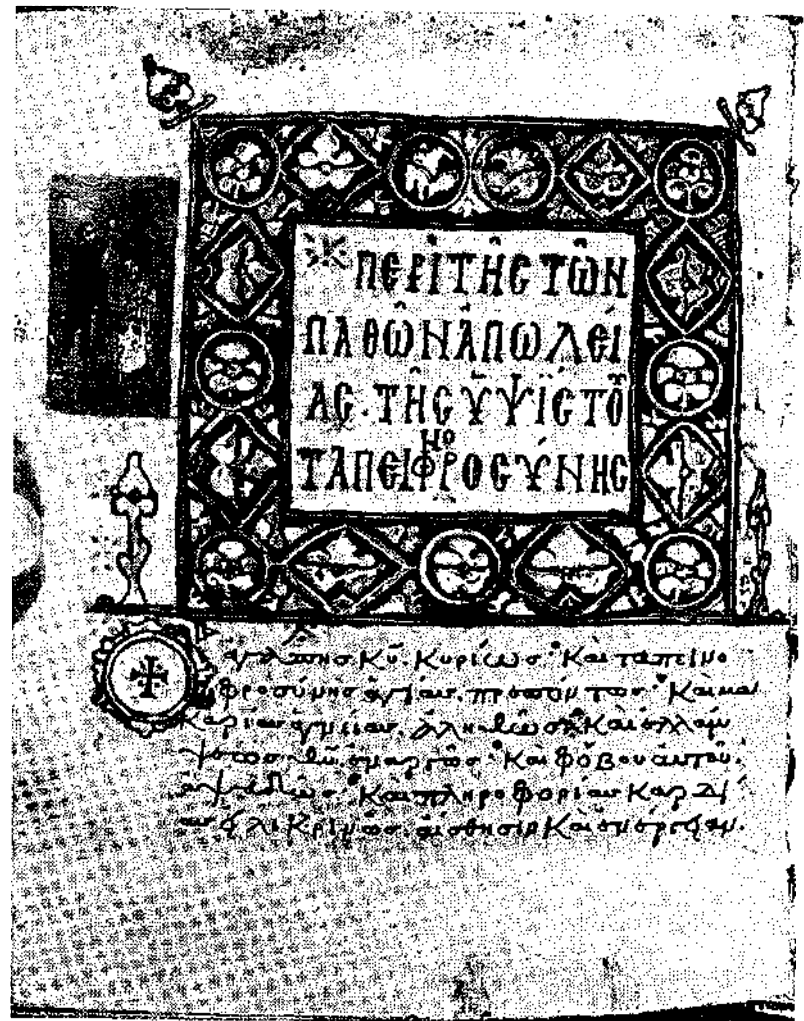 ΠΕΡῚ ΤΗ͂Ϲ ΤΩ͂Ν
ΠΑΘΩ͂Ν ἈΠΩΛΕΊ
ΑϹ· ΤΗ͂Ϲ ὙΨΪϹΤΟΥ
ΤΑΠΕΙΝΟΦΡΟϹΎΝΗϹ
Ὁ ἀγάπης κυ. κυρίως· καὶ ταπεινο
φροσύνης ἁγίας. προσόντως· καὶ μα
καρίας ἁγνείας. ἀληθῶς· καὶ ἐλλάμ
ψεως θυ. ἐναργῶς· καὶ φόβου αὐτοῦ.
ἀψευδῶς· καὶ πληροφορίας καρδί
ας εἰλικρινῶς. αἴσθησιν καὶ